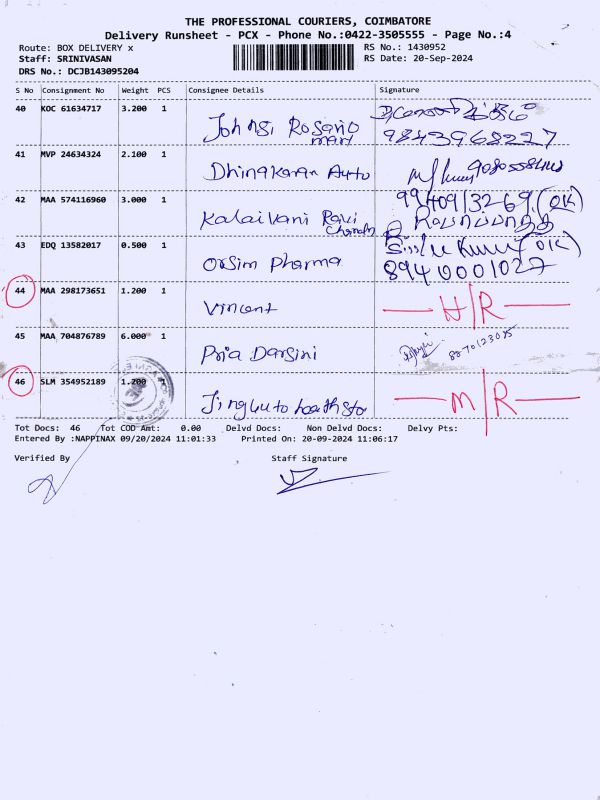 THE PROFESSIONAL COURIERS, COIMBATORE
Delivery Runsheet - PCX - Phone No.:0422-3505555 - Page No.:4
Route: BOX DELIVERY x RS No.: 1430952
Staff: SRINIVASAN RS Date: 20-Sep-2024
DRS No.: DCJB143095204
S No Consignment No Weight PCS Consignee Details Signature
40 KOC 61634717 3.200 1 Rosario
mary 9843968227
41 MVP 24634324 2.100 1 Dhinakaran Auto
42 MAA 574116960 3.000 1 Kalaivani Ravi 9940913269 (OK)
Chandra
43 EDQ 13582017 0.500 1 Orsim Pharma (OK)
8940001027
44 MAA 298173651 1.200 1 Vincent H/R
45 MAA 704876789 6.000 1 Pria Darsini 8870123075
46 SLM 354952189 1.200 M/R
Tot Docs: 46 Tot COD Amt: 0.00 Delvd Docs: Non Delvd Docs: Delvy Pts:
Entered By :NAPPINAX 09/20/2024 11:01:33 Printed On: 20-09-2024 11:06:17
Verified By Staff Signature